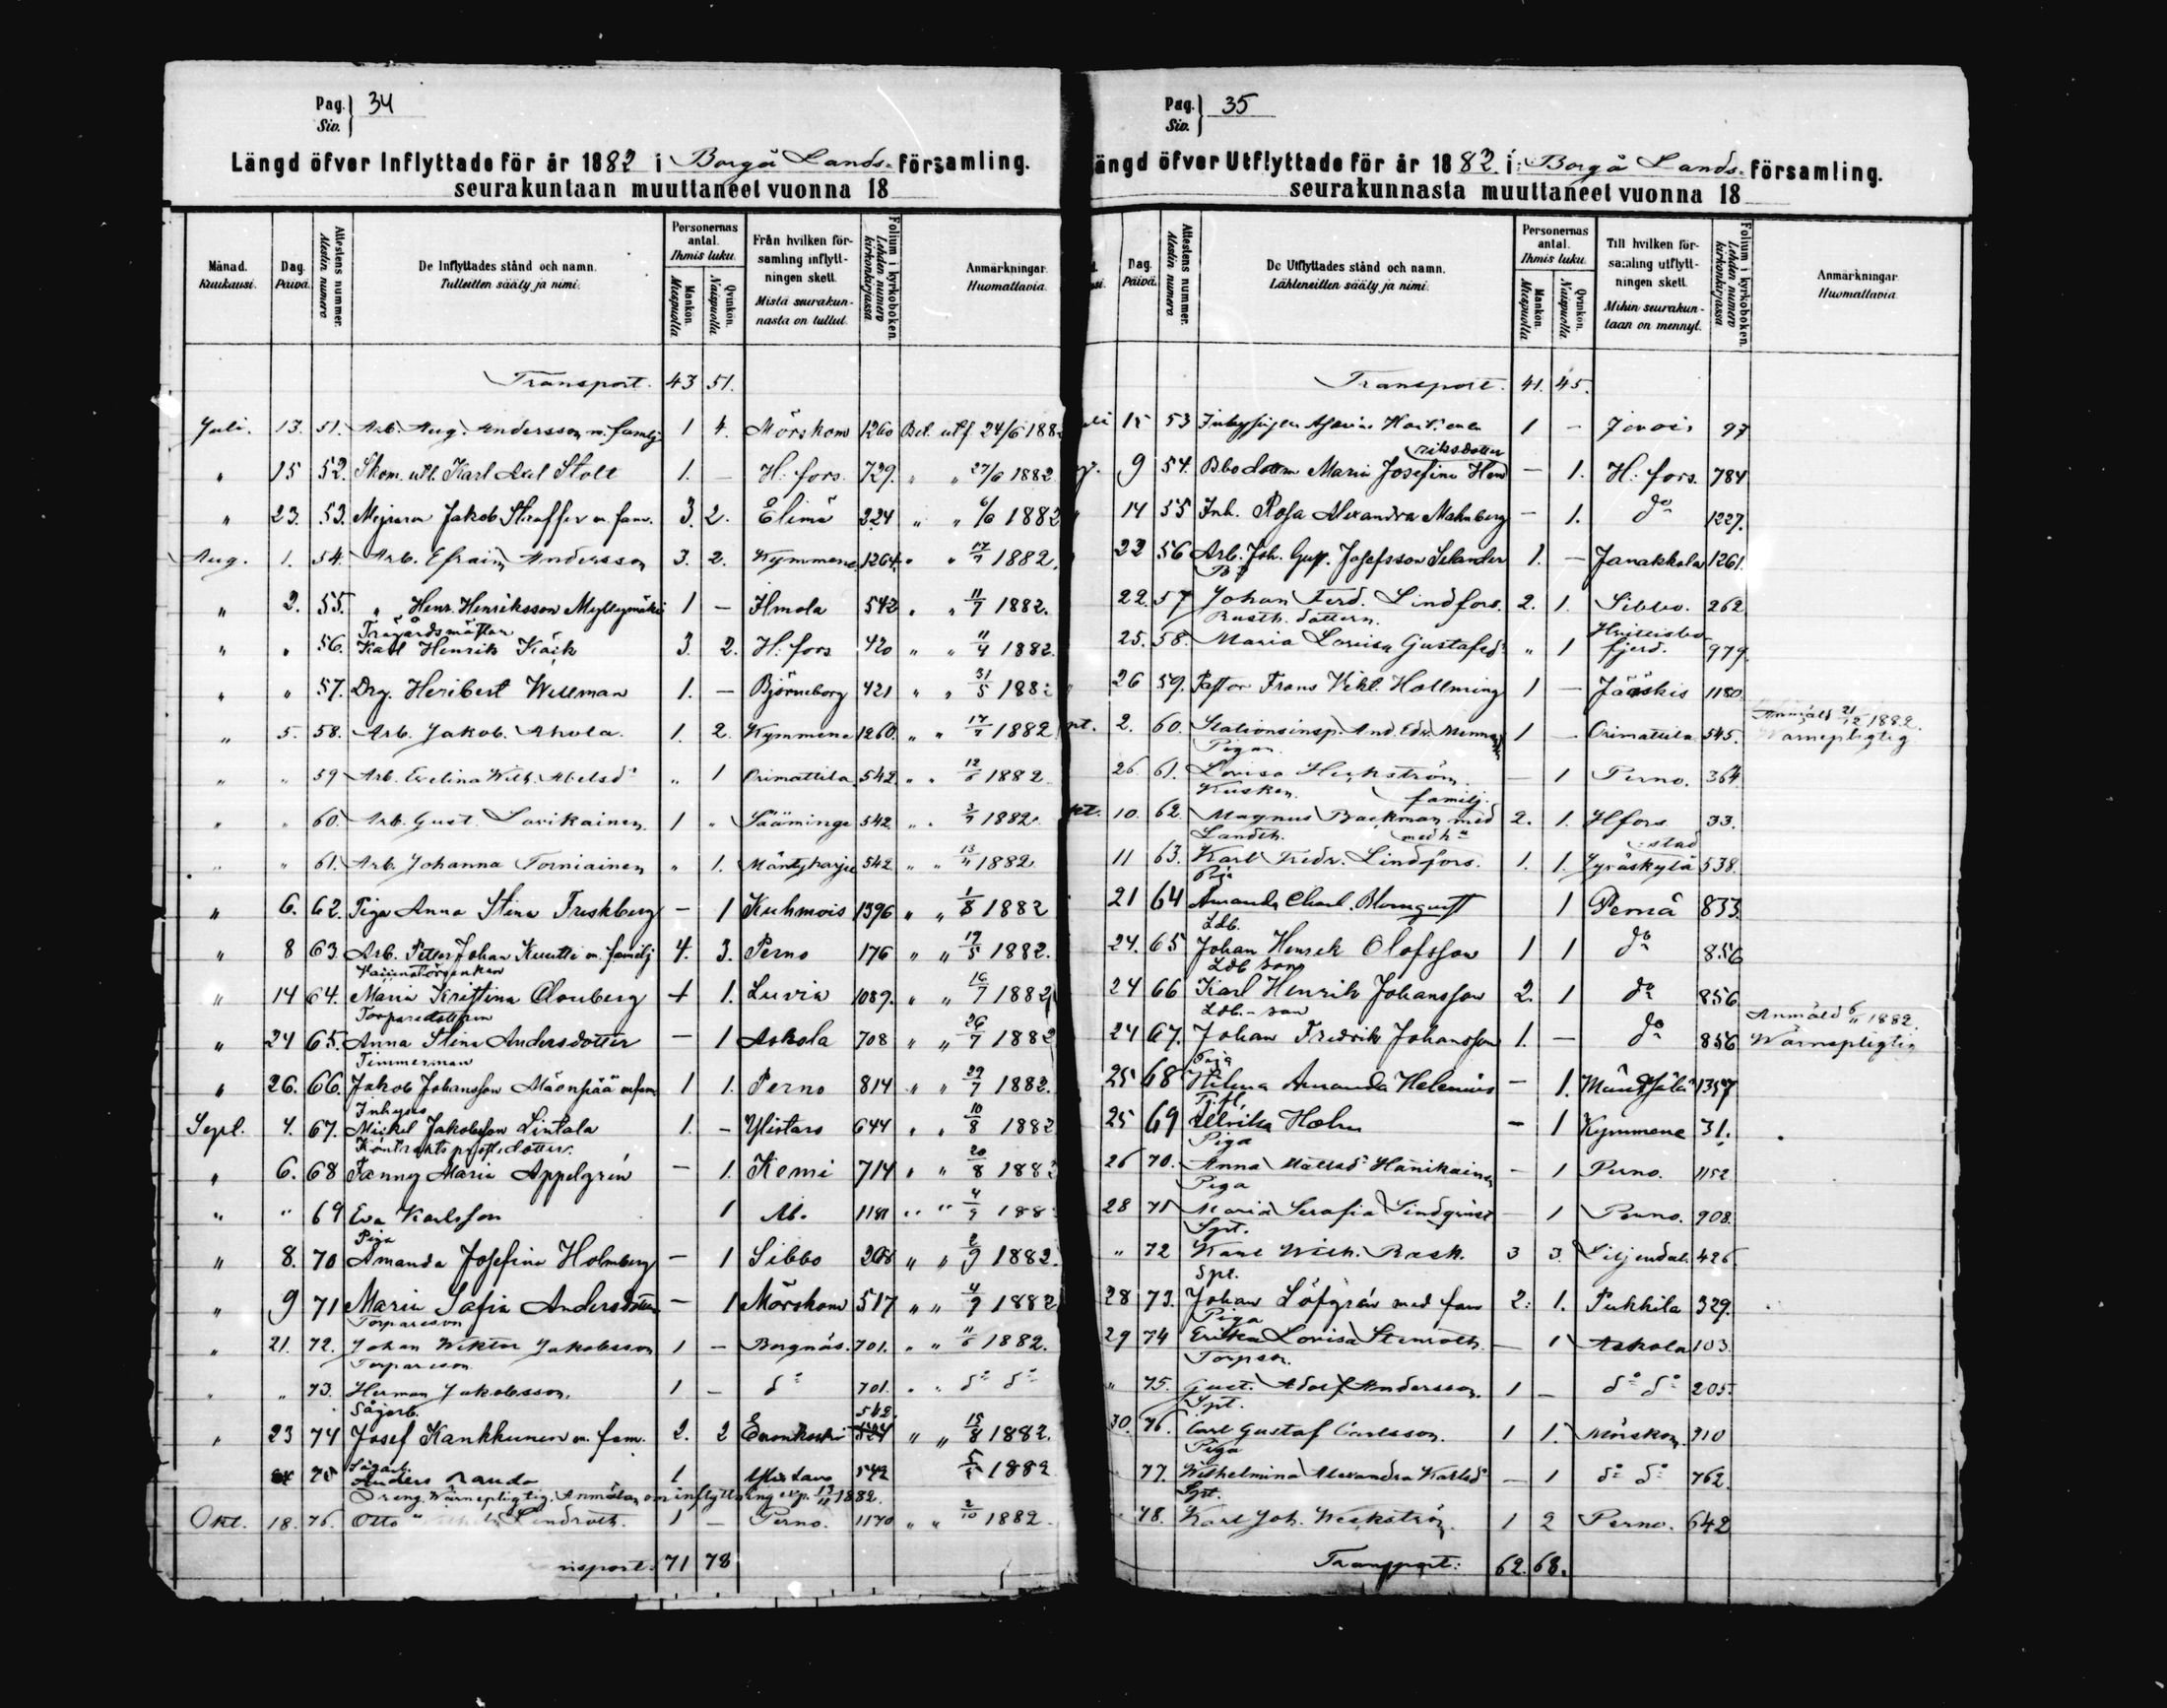 Pag. 34
Siv.
Längd öfver Inflyttade för år 1882 i Borgå Lands. församling.
seurakuntaan muuttaneet vuonna 18
Månad. Kuukausi. Dag. Päivä. Attestens nummer. Alestin numero De Inflyttades stånd och namn. Tulleitten sääty ja nimi. Personernas antal. Ihmis luku. Mankön. Miespuolia Qvinkön. Naispuolia Från hvilken församling inflyttningen skett. Mistä seurakunnasta on tullut. Folium i kyrkoboken. Lehden numero kirkonkirjassa Anmärkningar. Huomattavia.
Transport. 43 51.
Juli. 13. 51. Arb. Aug. Andersson m. familj 1 4. Mörskom 1260 Bet. utf. 24/6 1882
" 15 52. Skom. utl. Karl Axel Stolt 1. – H:fors. 729. " " 27/6 1882
" 23. 53. Mejraren Jakob Straffer m. fam. 3. 2. Elimä 224 " " 6/6 1882
Aug. 1. 54. Arb. Efraim Andersson 3. 2. Kymmene 1264. " " 17/7 1882.
" 2. 55. " Henr. Henriksson Myllymäki 1 – Ilmola 542 " " 11/7 1882.
" " 56. Trägårdsmästar Karl Henrik Käck 3. 2. H:fors 420 " " 11/4 1882.
" " 57. Drg. Heribert Wellman 1. – Björneborg 421 " " 31/5 1882
" 5. 58. Arb. Jakob Ahola. 1. 2. Kymmene 1260. " " 17/7 1882
" " 59 Arb. Evelina Wilh. Abelsd:r " 1 Orimattila 542 " " 12/6 1882
" " 60. Arb. Gust. Lavikainen. 1 " Sääminge 542 " " 3/7 1882.
" " 61. Arb. Johanna Torniainen " 1. Mäntyharju 542 " " 13/11 1882
" 6. 62. Piga Anna Stina Freskberg – 1 Kuhmois 1396 " " 1/8 1882
" 8 63. Arb. Petter Johan Kuutti m. familj 4. 3. Perno 176 " " 19/5 1882.
" 14 64. Maria Kristina Clouberg + 1. Luvia 1089. " " 16/7 1882
" 24 65. Anna Stina Andersdotter – 1 Askola 708 " " 26/7 1882
" 26. 66. Timmerman Jakob Johansson Mäenpää m fam 1 1. Perno 814 " " 29/7 1882.
Sept. 4. 67. Inhyses Mickel Jakobsson Lintala 1. – Ylistaro 644 " " 10/8 1882
" 6. 68 Fanny Maria Appelgrén – 1. Kemi 714 " " 20/8 1882
" " 69 Eva Karlsson 1 1181 " " 4/9 188
" 8. 70 Piga Amanda Josefina Holmberg – 1 Sibbo 208 " " 2/9 1882.
" 9 71 Maria Safia Andersdotter – 1 Mörskom 517 " " 4/9 1882
" 21. 72. Torpareson Johan Wiktor Jakobsson 1 – Borgnäs. 701. " " 11/6 1882.
" " 73. Torpareson Herman Jakobsson. 1 – d:o 701. " " d:o d:o
" 23 74 Sågarb. Josef Kankkunen m. fam. 2. 2 542. " " 15/8 1882.
75 Sågarb. Anders 1 Ylistaro 542 1882
Dräng. Wärnepligtig. Anmälan om inflyttning exp. 13/11 1882.
Okt. 18. 76. Otto Lindroth. 1 – Perno. 1170 " " 2/10 1882.
nsport. 71 78
Pag. 35
Siv.
ängd öfver Utflyttade för år 1882. i: Borgå Lands. församling.
seurakunnasta muuttaneet vuonna 18
Dag. Päivä. Attestens nummer. Alestin numero De Utflyttades stånd och namn. Lähteneitten sääty ja nimi. Personernas antal. Ihmis luku. Mankön. Miespuolia Qvinkön. Naispuolia Till hvilken församling utflyttningen skett. Mihin seurakuntaan on mennyt. Folium i kyrkoboken. Lehden numero kirkonkirjassa Anmärkningar. Huomattavia.
Transport. 41. 45.
15 53 1 – Jorois 97
9 54. Bbodottern Maria Josefina Henriksdotter – 1. H:fors. 784
14 55 Inh. Rosa Alexandra Malmberg – 1. d:o 1227.
22 56 Arb. Joh. Gust. Josefsson Selander 1. – Janakkala 1261.
22. 57 Johan Ferd. Lindfors. 2. 1. Sibbo. 262
25. 58. Rusth. dottern. Maria Lovisa Gustafsd:r " 1 Hvittisbofjerd. 979.
26 59. Pastor Frans Vikt. Hallming 1 – Jääskis 1180
2. 60. Stationsinsp. And. Edv. 1 – Orimattila 545. Anmäld 21/12 1882. Wärnepligtig
26. 61. Pigan. Lovisa Heckström – 1 Perno. 364.
10. 62. Kusken. Magnus Backman med familj. 2. 1. Hfors 33.
11 63. Landth. Karl Fredr. Lindfors. med h:u 1. 1. Jyväskylä stad 538.
21 64 Pig Amanda Charl. Blomqvist 1 Pernå 833.
24. 65 Ldb. Johan Henrik Olofsson 1 1 d:o 856
24 66 Ldb son Karl Henrik Johansson 2. 1 d:o 856
24 67. Ldb.-son Johan Fredrik Johansson 1. – d:o 856 Anmäld 6/11 1882. Wärnepligtig
25 68 Piga Hilma Amanda Helenius – 1. Mäntsälä 1357
25 69 Tj.fl. Ulrika Holm – 1 Kymmene 31.
26 70. Piga Anna Mattsd:r Hänikäinen – 1 Perno. 1152
28 71 Piga Maria Serafia Lindqvist – 1 Perno. 908.
" 72 Spt. Karl Wilh. Rask. 3 3. Liljendal. 426.
28 73. Spt. Johan Löfgrén med fam 2. 1. Pukkila 329.
29 74 Piga Erika Lovisa Stenroth – 1 Askola 103
" 75. Torpson. Gust. Adolf Andersson. 1 – d:o d:o 205.
30. 76. Spt. Carl Gustaf Carlsson. 1 1. Mörskom. 910
77. Piga Wilhelmina Alexandra Karlsd:r – 1 d:o d:o 762.
78. Spt. Karl Joh. Weckström. 1 2 Perno. 642
Transport: 62. 68.